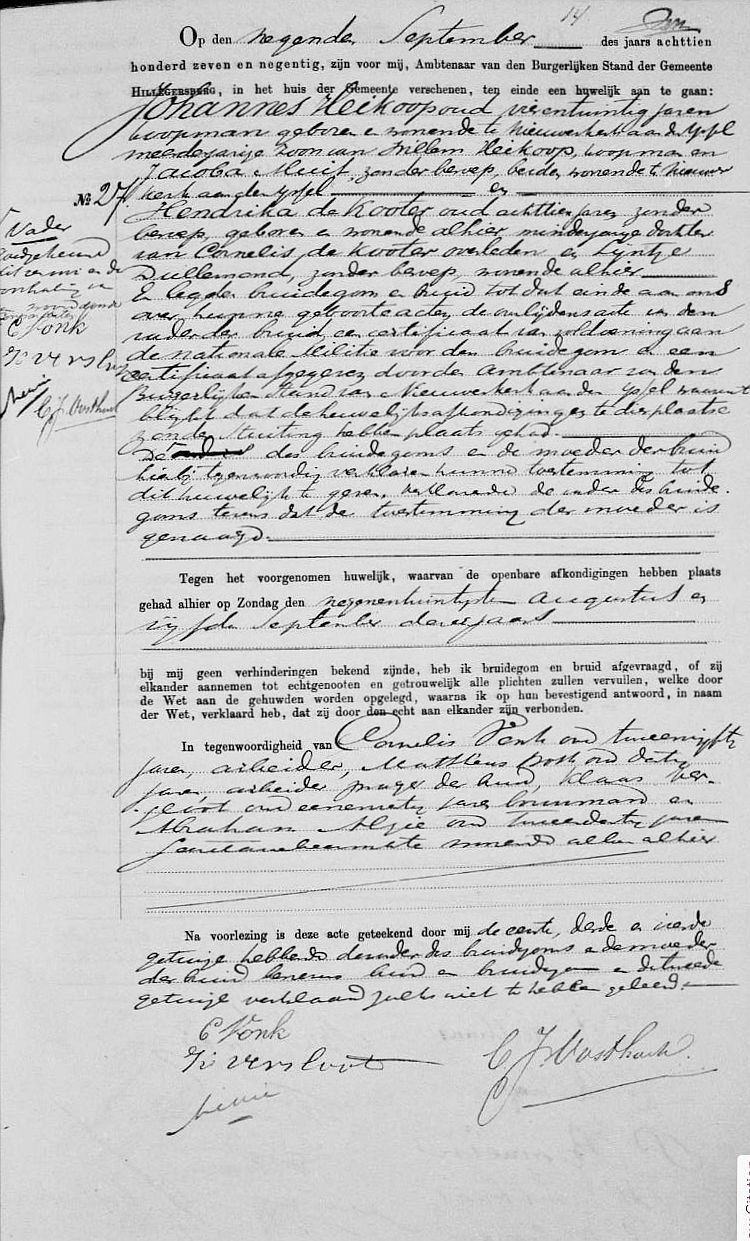 14
Op den negenden September des jaars achttien
honderd zeven en negentig, zijn voor mij, Ambtenaar van den Burgerlijken Stand der Gemeente
HILLEGERSBERG, in het huis der Gemeente verschenen, ten einde een huwelijk aan te gaan:
Johannes Heikoop oud vierentwintig jaren
koopman geboren en wonende te Nieuwerkerk aan den IJssel
meerderjarige zoon van Willem Heikoop, koopman en
Jacoba Muit, zonder beroep, beiden wonende te Nieuwer
kerk aan den IJssel en
No 27
Hendrika de Kooter oud achttien jaren zonder
beroep, geboren en wonende alhier minderjarige dochter
van Cornelis de Kooter overleden en Lijntje
Dullemond, zonder beroep, wonende alhier
En legden bruidegom en bruid tot dat einde aan ons
over hunne geboorteacten, de overlijdensacte van den
vader der bruid, een certificaat van voldoening aan
de Nationale Militie voor den bruidegom en een
certificaat afgegeven door den Ambtenaar van den
Burgerlijken Stand van Nieuwerkerk aan den IJssel waaruit
blijkt dat de huwelijksafkondigingen te dier plaatse
zonder stuiting hebben plaats gehad.
De des bruidegoms en de moeder der bruid
hierbij tegenwoordig verklaren hunne toestemming tot
dit huwelijk te geven, verklarende de vader des bruide-
goms tevens dat de toestemming der moeder is
gevraagd.
Vader
goedgekeurd
C Vonk
K versloot
C J Oosthoek
Tegen het voorgenomen huwelijk, waarvan de openbare afkondigingen hebben plaats
gehad alhier op Zondag den negenentwintigsten Augustus en
vijfden September dezes jaars
bij mij geen verhinderingen bekend zijnde, heb ik bruidegom en bruid afgevraagd, of zij
elkander aannemen tot echtgenooten en getrouwelijk alle plichten zullen vervullen, welke door
de Wet aan de gehuwden worden opgelegd, waarna ik op hun bevestigend antwoord, in naam
der Wet, verklaard heb, dat zij door den echt aan elkander zijn verbonden.
In tegenwoordigheid van Cornelis Vonk oud tweeenvijftig
jaren, arbeider, Mattheus oud dertig
jaren, arbeider zwager der bruid, Klaas Ver-
sloot oud eenennegentig jaren bouwman en
Abraham oud tweeendertig jaren
wonende allen alhier
Na voorlezing is deze acte geteekend door mij de eerste, derde en vierde
getuige hebbende de vader des bruidegoms en de moeder
der bruid benevens bruid en bruidegom en de tweede
getuige verklaard zulks niet te hebben geleerd.
C Vonk
K versloot
C J Oosthoek